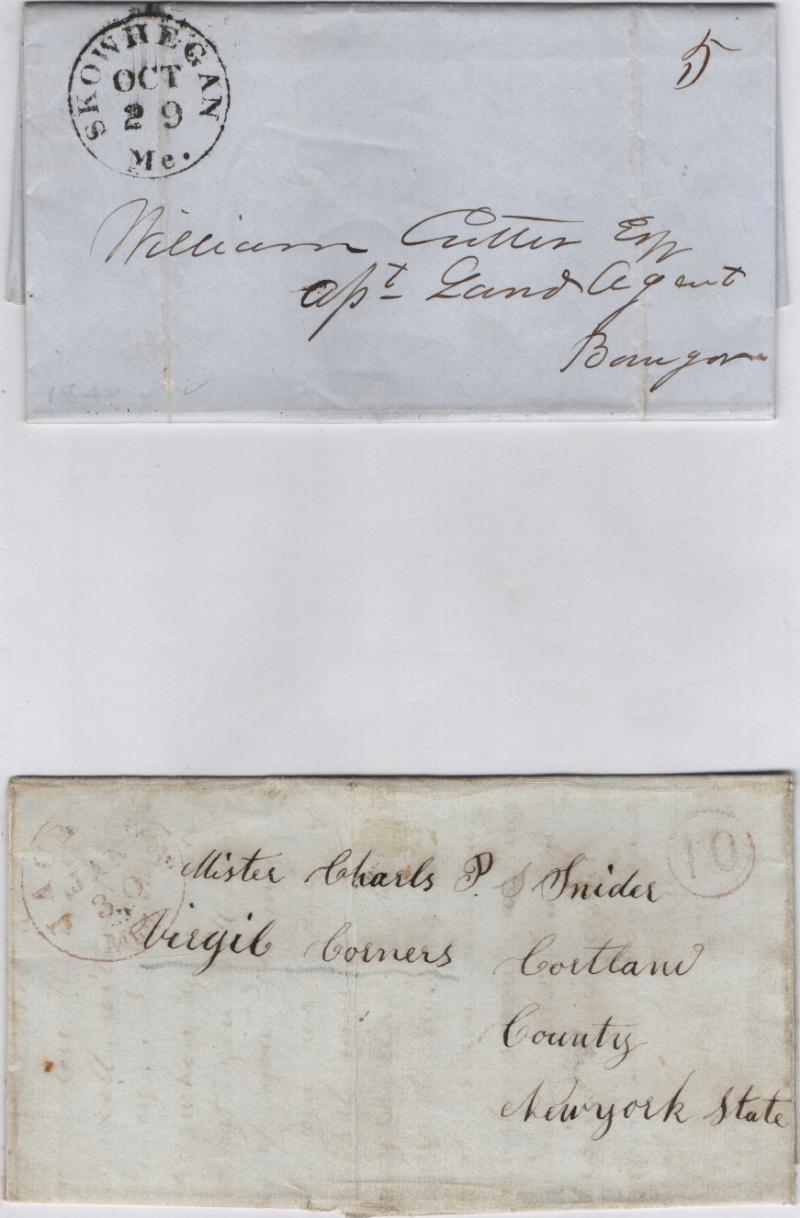 SKOWHEGAN
OCT
29
Me.
5
William Cutter Esq
Land Agent
Bangor
JAN
30
10
Mister Charls P. Snider
Virgil Corners Cortland
County
Newyork State